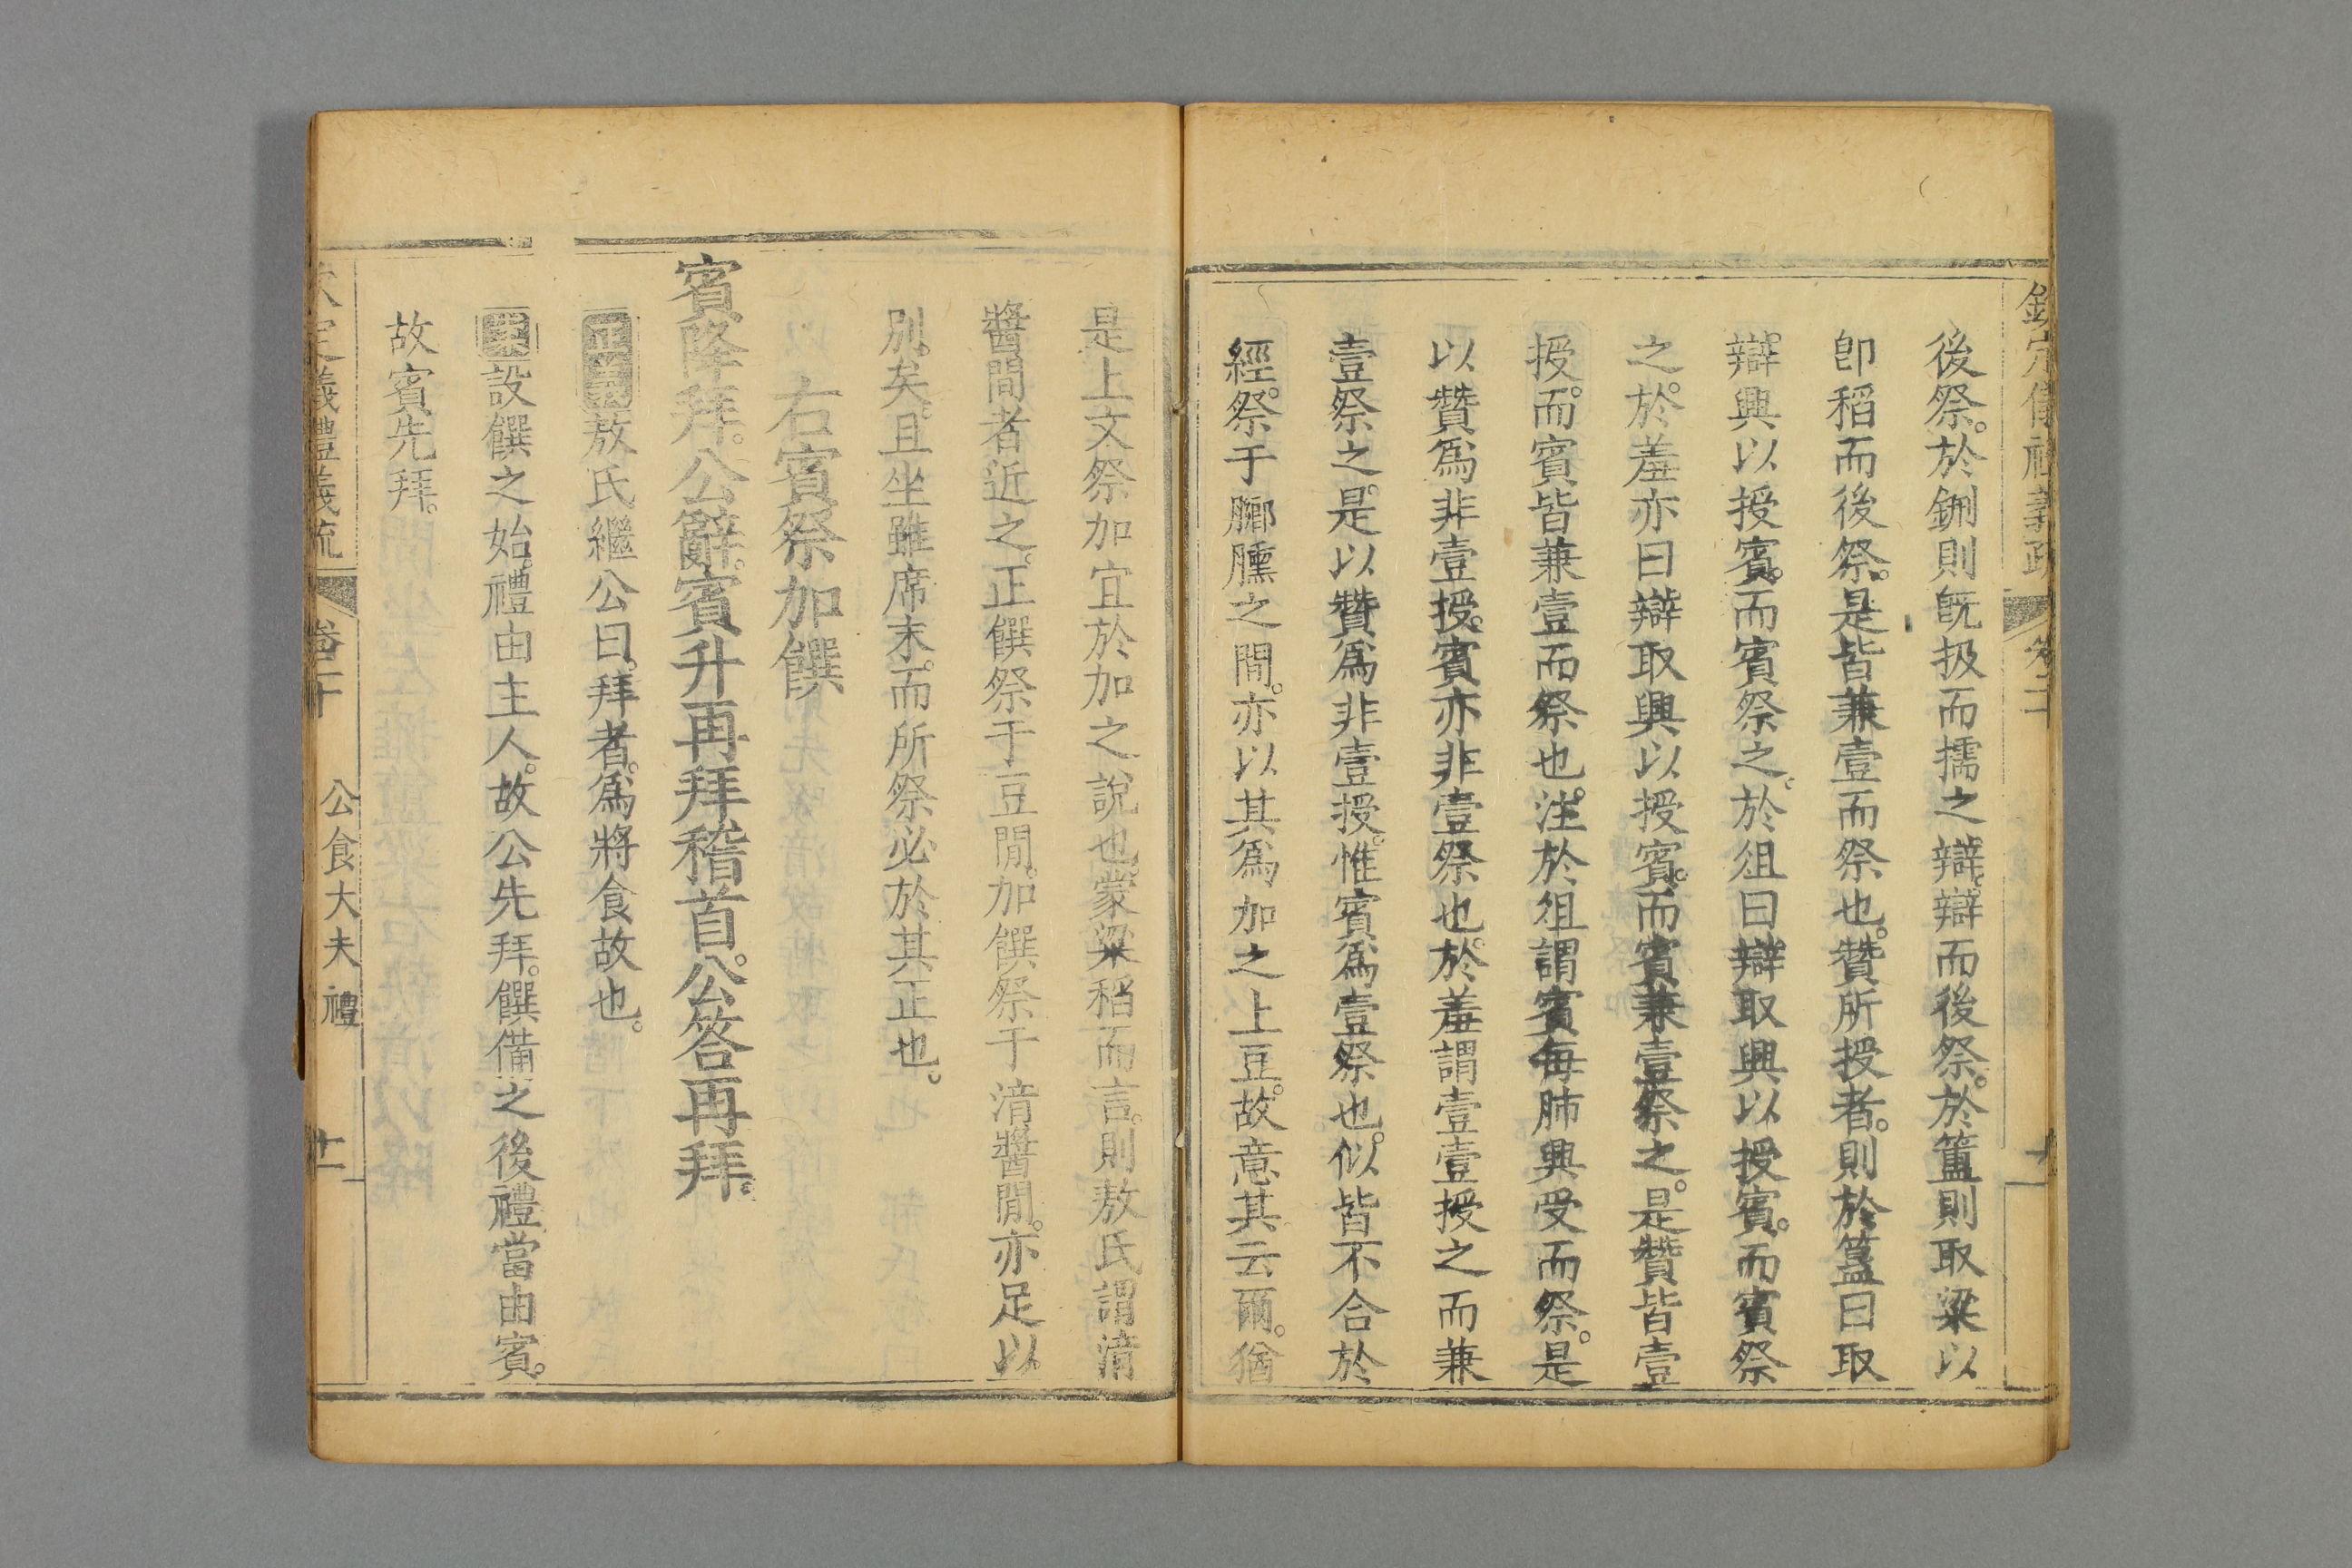 欽定儀禮義疏 卷二十
後祭。於鉶則旣扱而擩之辯。辯而後祭。於簠則取粱以
卽稻而後祭。是皆兼壹而祭也。贊所授者。則於簋曰取
辯。興以授賓。而賓祭之。於俎曰辯取興以授賓。而賓祭
之。於羞亦曰辯取興以授賓。而賓兼壹祭之。是贊皆壹
授。而賓皆兼壹而祭也。注於俎謂賓每肺興受而祭。是
以贊爲非壹授。賓亦非壹祭也。於羞謂壹壹授之而兼
壹祭之。是以贊爲非壹授。惟賓爲壹祭也。似皆不合於
經。祭于膷臐之閒。亦以其爲加之上豆。故意其云爾。猶
是上文祭加宜於加之說也。蒙粱稻而言。則敖氏謂湆
醬間者近之。正饌祭于豆閒。加饌祭于湆醬閒。亦足以
別矣。且坐雖席末。而所祭必於其正也。
右賓祭加饌
賓降拜。公辭。賓升再拜稽首。公答再拜。
正義敖氏繼公曰。拜者。爲將食故也。
案設饌之始。禮由主人。故公先拜。饌備之後禮當由賓。
故賓先拜。
欽定儀禮義疏 卷二十 公食大夫禮 十一